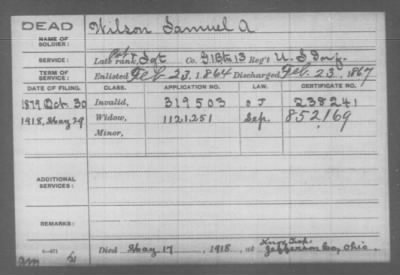 DEAD
NAME OF SOLDIER:
Wilson Samuel A
SERVICE:
Late rank, Sgt Co. 21Bt. 13 Reg't U. S. Inf.
TERM OF SERVICE:
Enlisted Feb. 23, 1864 Discharged Feb. 23, 1867
DATE OF FILING. CLASS. APPLICATION NO. LAW. CERTIFICATE NO.
1879 Oct. 30 Invalid, 319503 238241
1918, May 29 Widow, 1121251 Sep. 852169
Minor,
ADDITIONAL SERVICES:
REMARKS:
Died May 17, 1918, at Knox Twp.
Jefferson Co, Ohio.